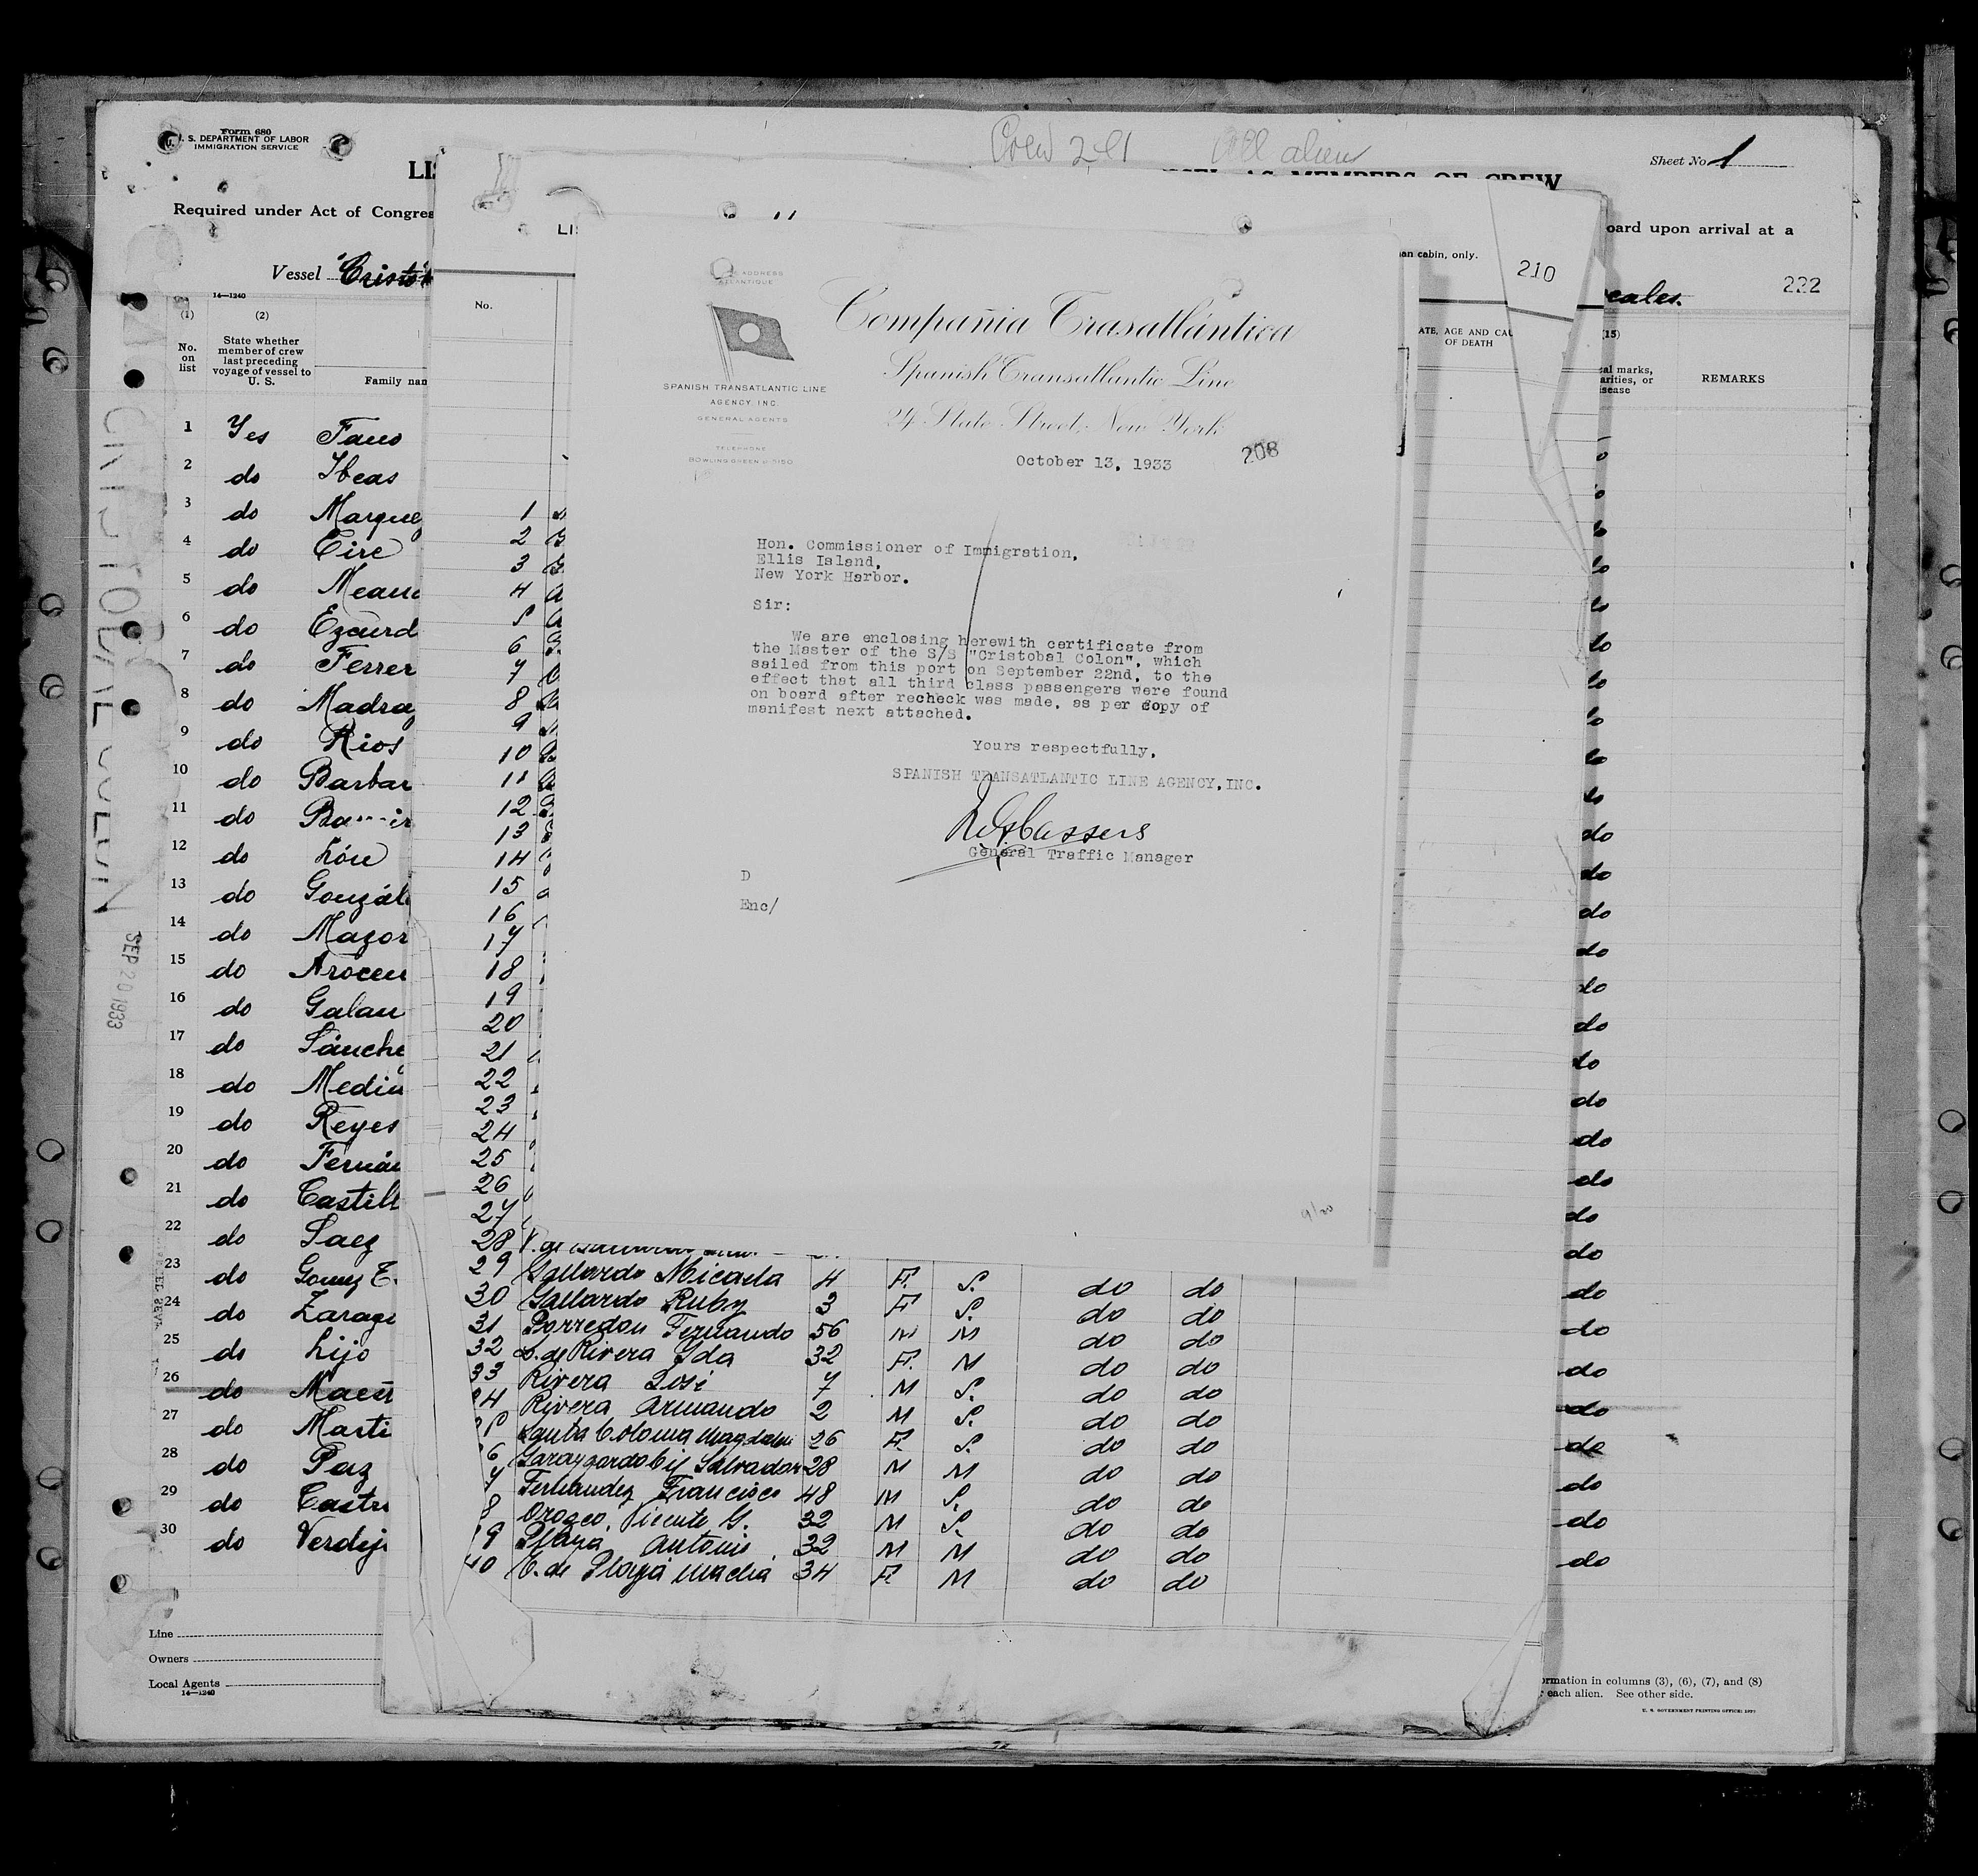 Form 680
U. S. DEPARTMENT OF LABOR
IMMIGRATION SERVICE
Crew 211 All alien
Sheet No. 1
LIS
SEL AS MEMBERS OF CREW
Required under Act of Congres
oard upon arrival at a
Vessel
eales.
222
14—1240
(1)
(2)
(15)
No. on list
State whether member of crew last preceding voyage of vessel to U. S.
Family nam
REMARKS
1 Yes
2 do Ibeas
3 do Marque
4 do Eire
5 do
6 do
7 do Ferrer
8 do Madra
9 do Rios
10 do Barbar
11 do
12 do
13 do Gonzál
14 do Mazor
15 do Arocen
16 do Galan
17 do Sánche
18 do Medin
19 do Reyes
20 do Fernán
21 do Castill
22 do Saez
23 do Gomez
24 do Zarago
25 do Lijo
26 do Maest
27 do Marti
28 do Paz
29 do Castr
30 do Verdej
Line
Owners
Local Agents
14—1240
ormation in columns (3), (6), (7), and (8)
each alien. See other side.
CRISTOBAL COLON
SEP 20 1933
LI
an cabin, only.
210
No.
ATE, AGE AND CAU
OF DEATH
1
2
3
4
5
6
7
8
9
10
11
12
13
14
15
16
17
18
19
20
21
22
23
24
25
26
27
28
29 Gallardo Micaela 4 F. S. do do
30 Gallardo Ruby 3 F S. do do
31 Borredon Fernando 56 M M do do
32 de Rivera Ida 32 F. M do do
33 Rivera José 7 M S. do do
34 Rivera Armando 2 M S. do do
Santa Coloma 26 F. S. do do
6 Salvador 28 M M do do
7 Fernandez Francisco 48 M S. do do
8 Orozco, Vicente G. 32 M S. do do
9 Playá Antonio 32 M M do do
40 de Playá 34 F. M do do
ADDRESS
ATLANTIQUE
SPANISH TRANSATLANTIC LINE
AGENCY, INC.
GENERAL AGENTS
TELEPHONE
BOWLING GREEN
Compañia Trasatlántica
Spanish Transatlantic Line
24 State Street, New York
208
October 13, 1933
Hon. Commissioner of Immigration,
Ellis Island,
New York Harbor.
Sir:
We are enclosing herewith certificate from
the Master of the S/S "Cristobal Colon", which
sailed from this port on September 22nd, to the
effect that all third class passengers were found
on board after recheck was made, as per copy of
manifest next attached.
Yours respectfully,
SPANISH TRANSATLANTIC LINE AGENCY, INC.
General Traffic Manager
D
Enc/